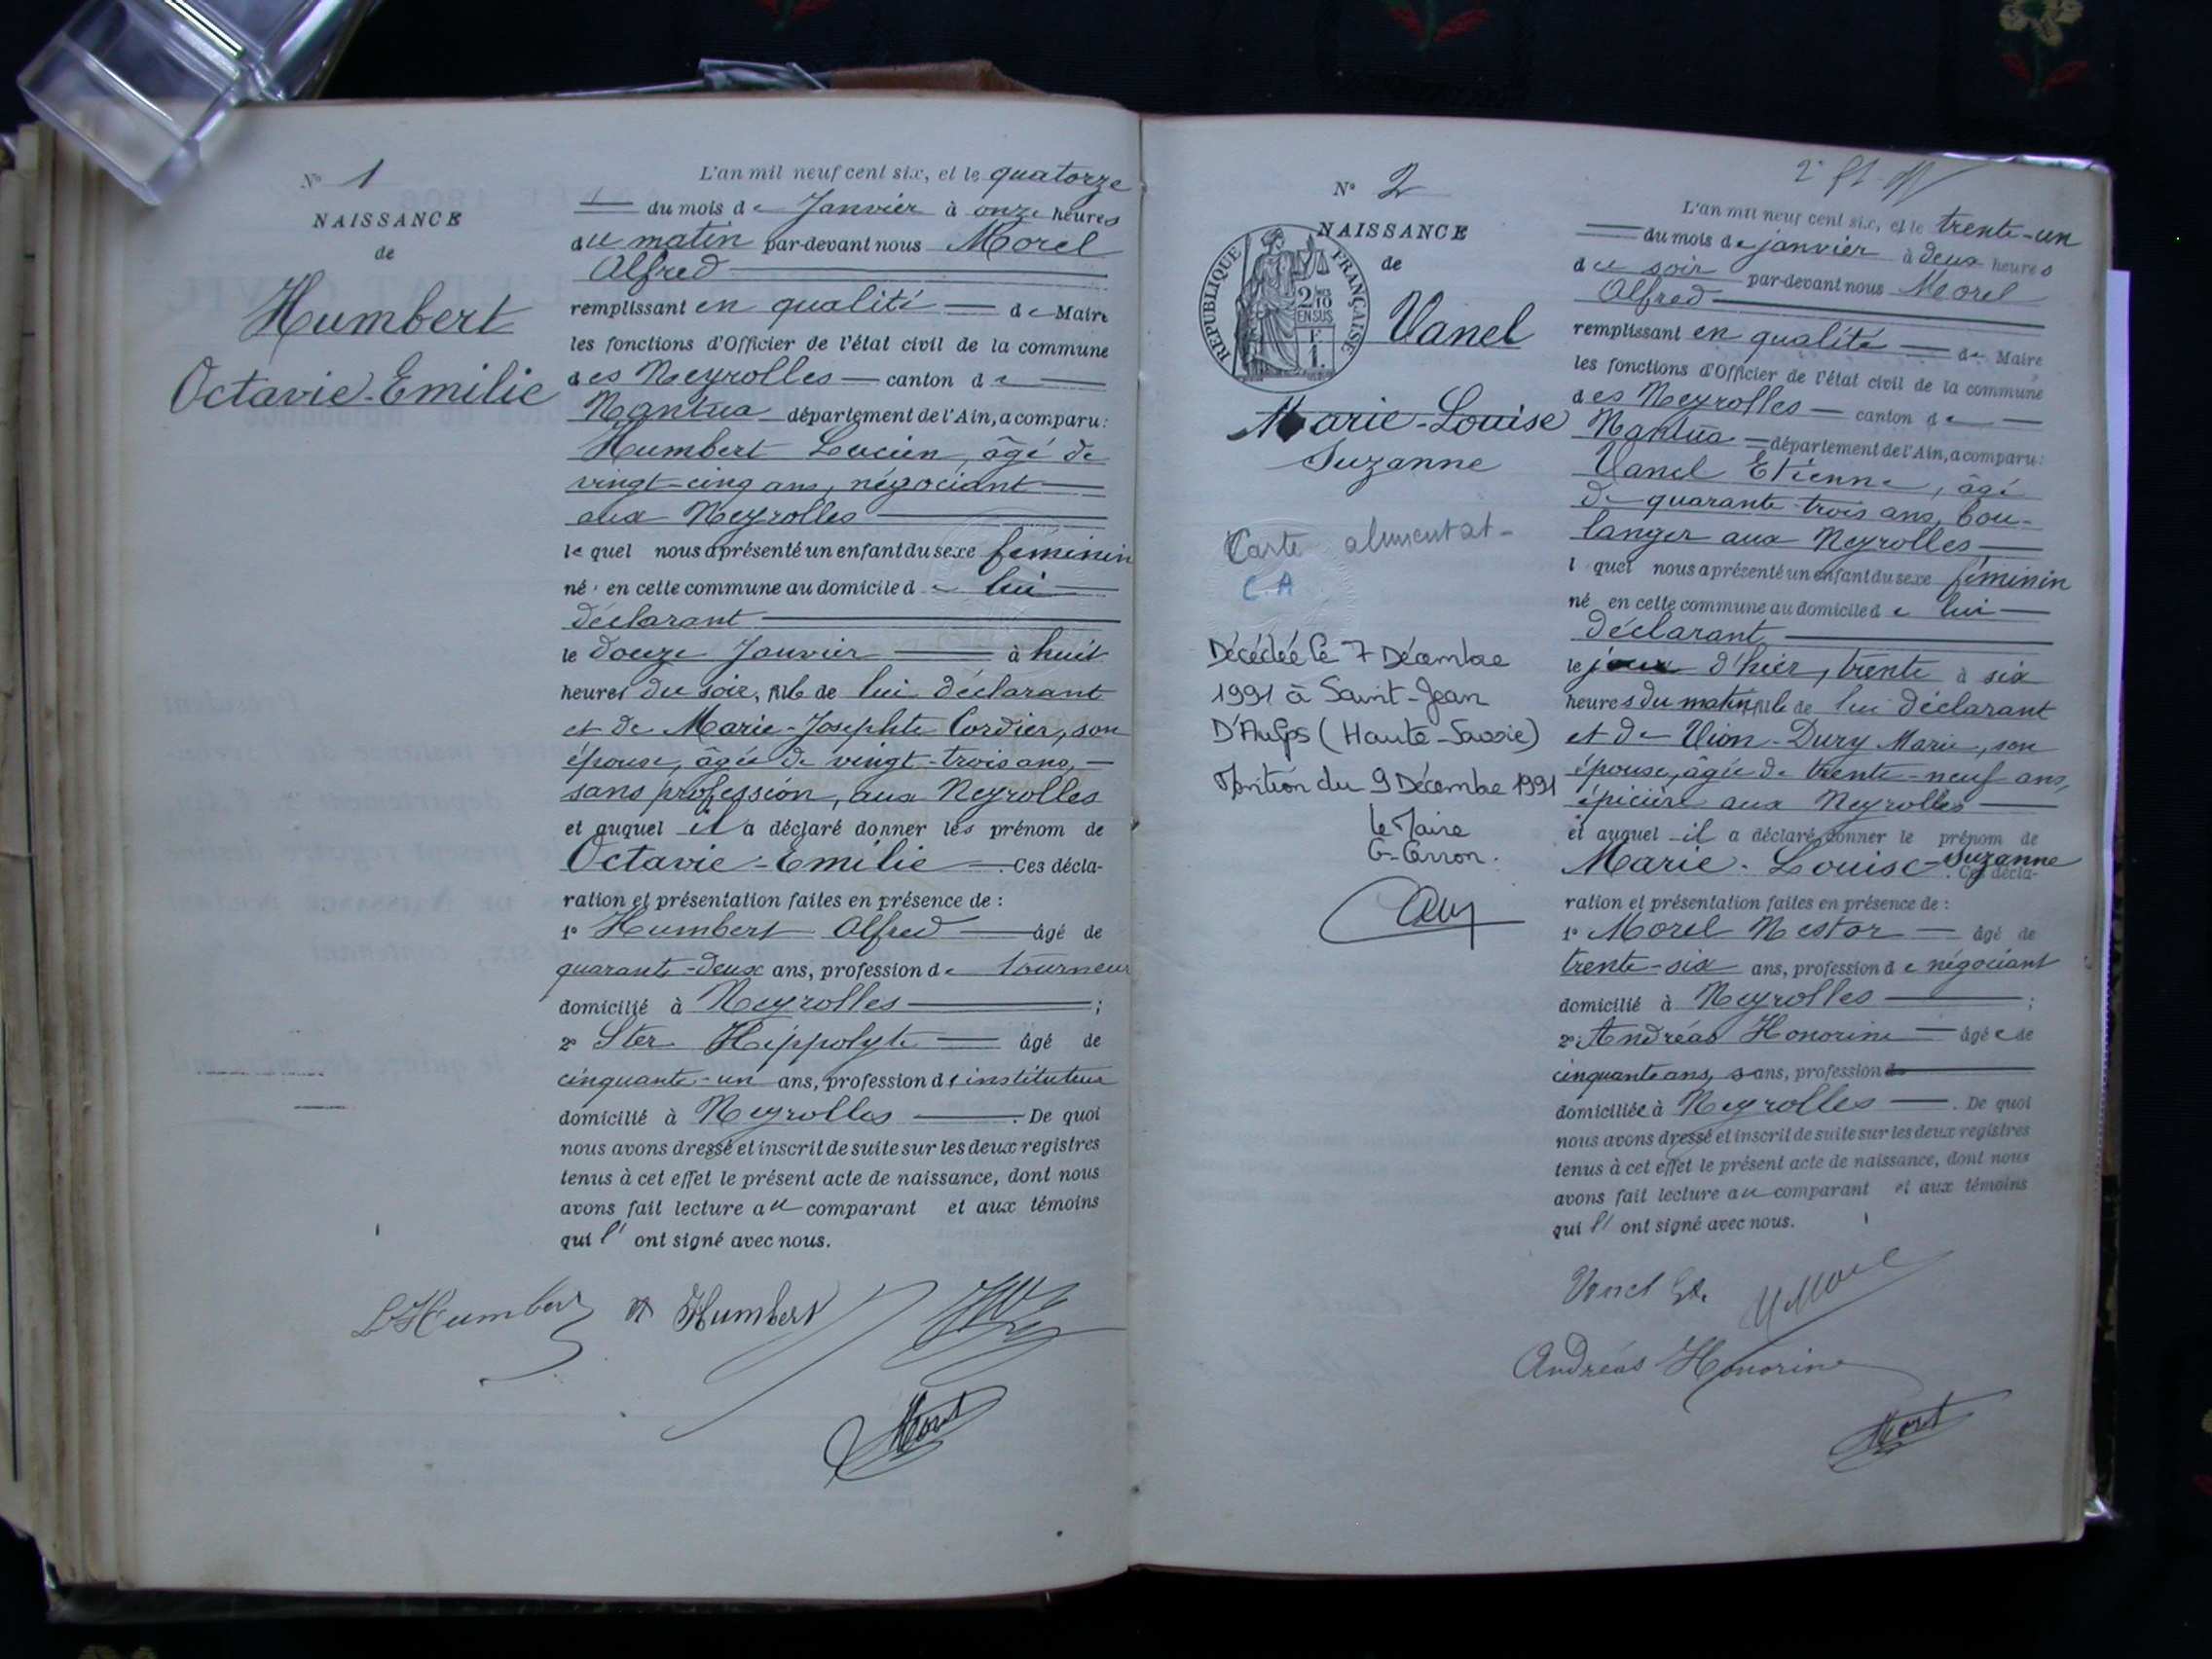 N° 1
NAISSANCE
de
Humbert
Octavie-Emilie
L'an mil neuf cent six, et le quatorze
du mois de Janvier à onze heures
du matin par-devant nous Morel
Alfred
remplissant en qualité de Maire
les fonctions d'Officier de l'état civil de la commune
des Neyrolles canton de
Nantua département de l'Ain, a comparu:
Humbert Lucien, âgé de
vingt-cinq ans, négociant
aux Neyrolles
lequel nous a présenté un enfant du sexe féminin
né en cette commune au domicile de lui
déclarant
le douze Janvier à huit
heures du soir, fille de lui déclarant
et de Marie-Josephte Cordier, son
épouse, âgée de vingt-trois ans,
sans profession, aux Neyrolles
et auquel il a déclaré donner les prénom de
Octavie-Emilie. Ces décla-
ration et présentation faites en présence de :
1° Humbert Alfred âgé de
quarante-deux ans, profession de tourneur
domicilié à Neyrolles ;
2° Ster Hippolyte âgé de
cinquante-un ans, profession d'instituteur
domicilié à Neyrolles. De quoi
nous avons dressé et inscrit de suite sur les deux registres
tenus à cet effet le présent acte de naissance, dont nous
avons fait lecture au comparant et aux témoins
qui l' ont signé avec nous.
L Humbert A Humbert
Morel
N° 2
NAISSANCE
de
RÉPUBLIQUE FRANÇAISE
2 10
EN SUS
1 F
Vanel
Marie-Louise
Suzanne
Carte alimentat-
C.A
Décédée le 7 Décembre
1991 à Saint-Jean
D'Aulps (Haute-Savoie)
Mention du 9 Décembre 1991
Le Maire
L'an mil neuf cent six, et le trente-un
du mois de janvier à deux heures
du soir par-devant nous Morel
Alfred
remplissant en qualité de Maire
les fonctions d'Officier de l'état civil de la commune
des Neyrolles canton de
Nantua département de l'Ain, a comparu:
Vanel Etienne, âgé
de quarante-trois ans, bou-
langer aux Neyrolles
l quel nous a présenté un enfant du sexe féminin
né en cette commune au domicile de lui
déclarant
le jour d'hier, trente à six
heures du matin, fille de lui déclarant
et de Vion-Dury Marie, son
épouse, âgée de trente-neuf ans,
épicière aux Neyrolles
et auquel il a déclaré donner le prénom de
Marie-Louise-Suzanne. Ces décla-
ration et présentation faites en présence de :
1° Morel Nestor âgé de
trente-six ans, profession de négociant
domicilié à Neyrolles ;
2° Andréas Honorine âgée de
cinquante ans, sans, profession
domiciliée à Neyrolles. De quoi
nous avons dressé et inscrit de suite sur les deux registres
tenus à cet effet le présent acte de naissance, dont nous
avons fait lecture au comparant et aux témoins
qui l' ont signé avec nous.
Vanel Et.
Andréas Honorine
Morel